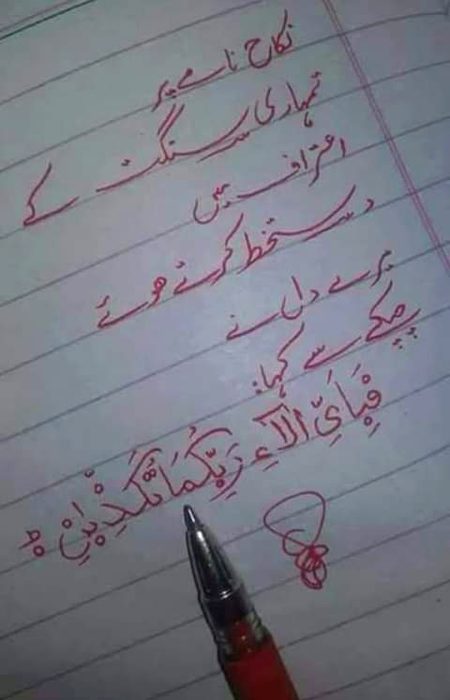 نکاح نامے پر
تمہاری سنگت کے
اعتراف میں
دستخط کرتے ہوئے
میرے دل نے
چپکے سے کہا:
فَبِاَیِّ اٰلَآءِ رَبِّکُمَا تُکَذِّبٰنِ